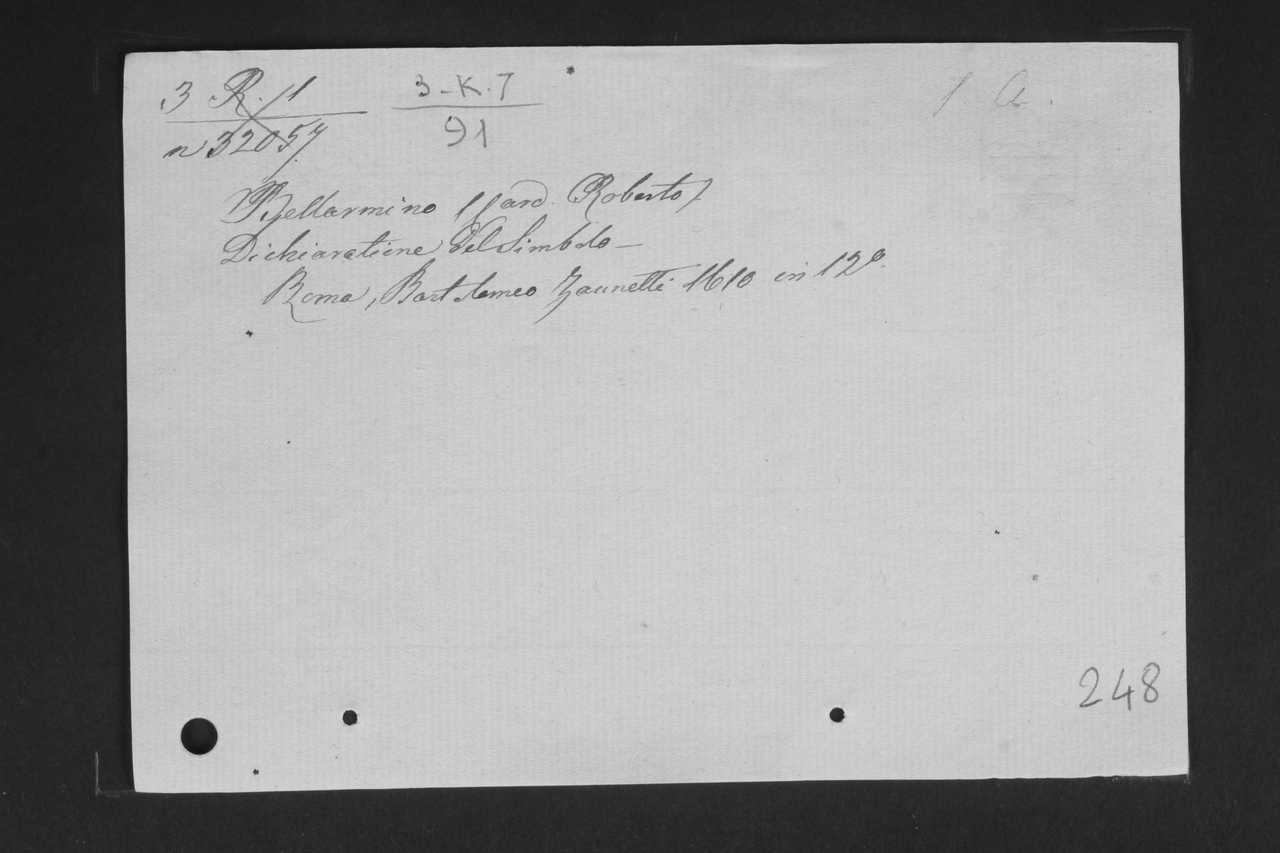 3 R. 1
n 32057
3-K.7
91
1 a.
Bellarmino (Card. Roberto)
Dichiaratione del Simbolo_
Roma, Bartolomeo Zannetti 1610 in 12º.
248